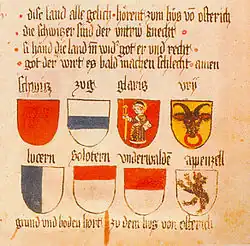 dise land alle gelich hörent zum hus von ostrich
die schwizer sind der untrw knecht
si händ die land wid got er und recht
got der wirt es bald machen schlecht amen
schwitz zug glaris vry
lucern solotern vnderwalde apenzell
grund und boden hört zu dem hus von ostrich